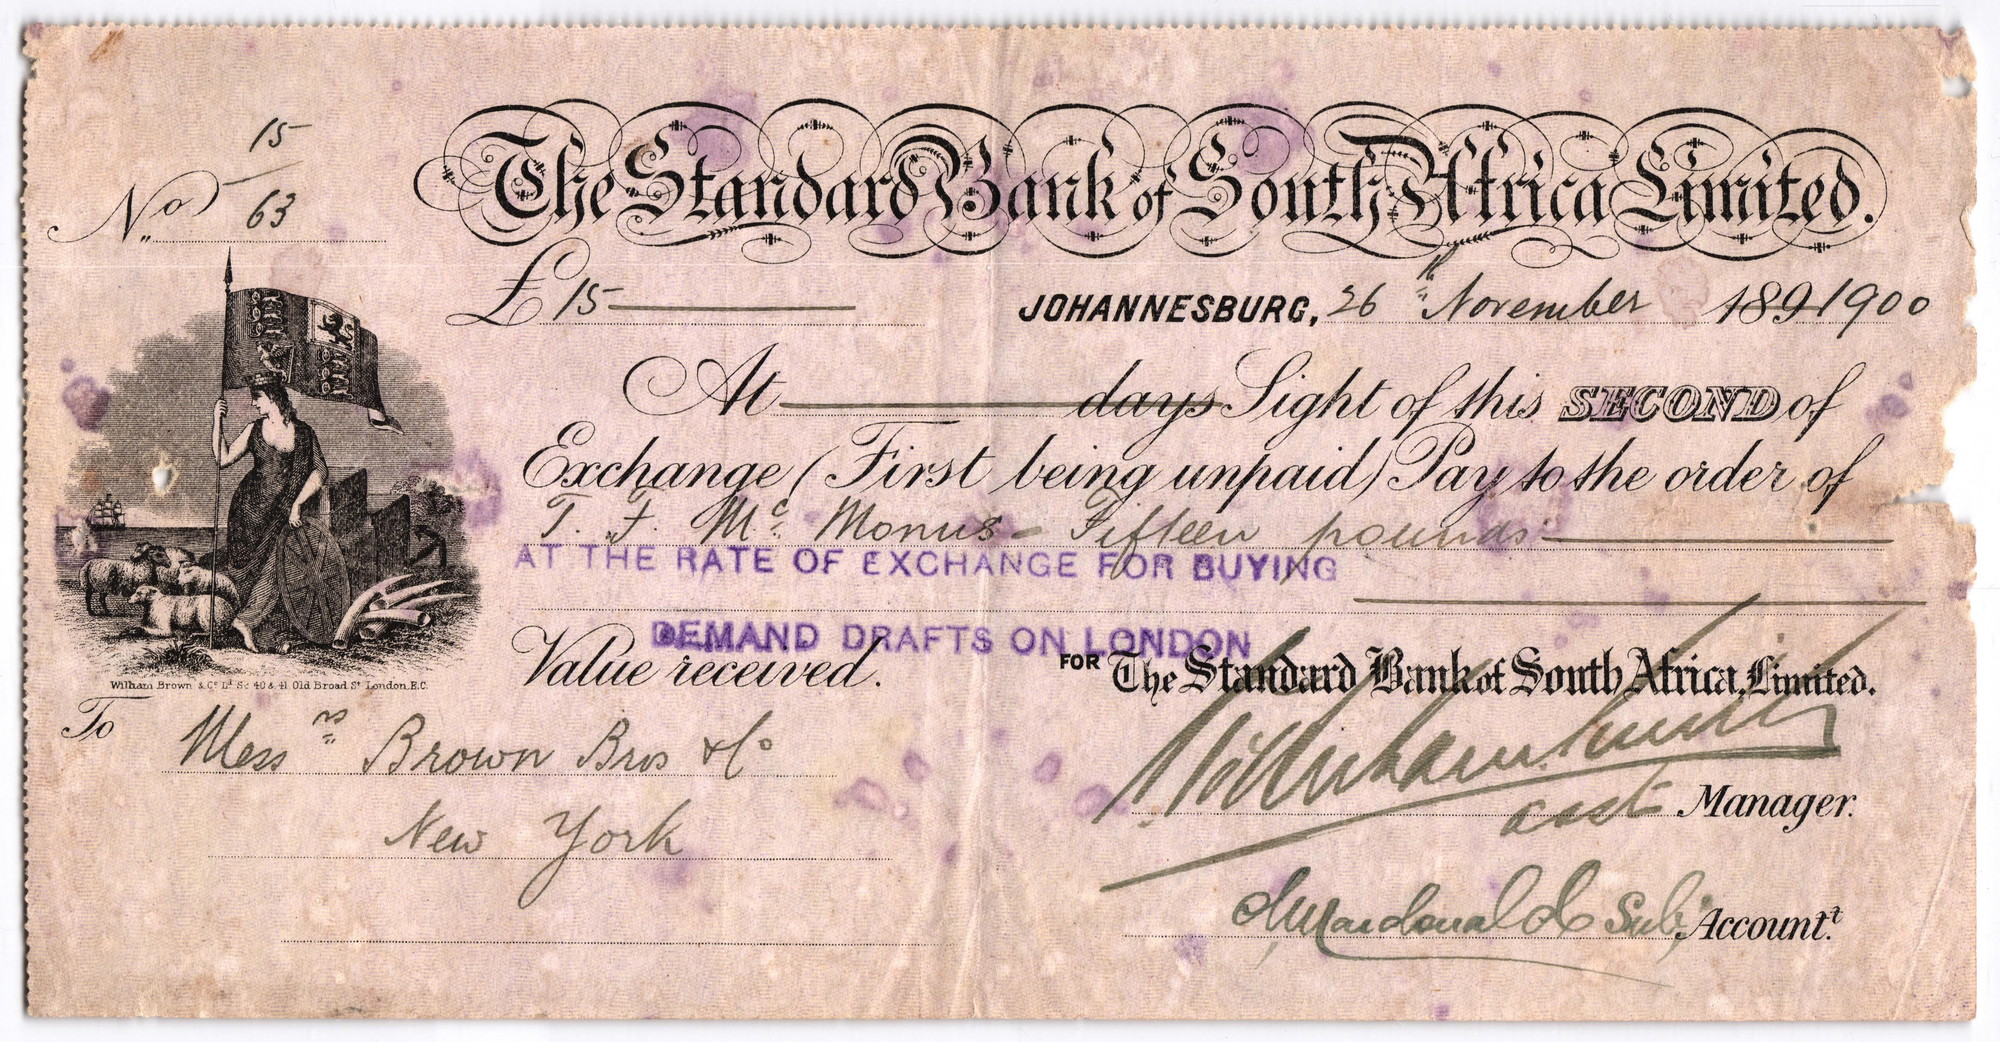 15
No 63
The Standard Bank of South Africa Limited.
£ 15
JOHANNESBURG, 26th November 1891900
At days Sight of this SECOND of
Exchange (First being unpaid) Pay to the order of
T. F. Mc Manus - Fifteen pounds
AT THE RATE OF EXCHANGE FOR BUYING
DEMAND DRAFTS ON LONDON
Value received.
FOR The Standard Bank of South Africa, Limited.
William Brown & Co Ld Sc 40 & 41 Old Broad St London, E.C.
To Messrs Brown Bros & Co
New York
asst Manager.
Macdonald Sub. Accountt.